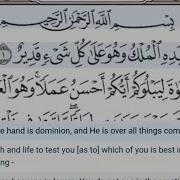 بِسْمِ ٱللَّهِ ٱلرَّحْمَٰنِ ٱلرَّحِيمِ
يَدِهِ ٱلْمُلْكُ وَهُوَ عَلَىٰ كُلِّ شَىْءٍ قَدِيرٌ
لِيَبْلُوَكُمْ أَيُّكُمْ أَحْسَنُ عَمَلًا وَهُوَ
e hand is dominion, and He is over all things com
h and life to test you [as to] which of you is best in
ng -